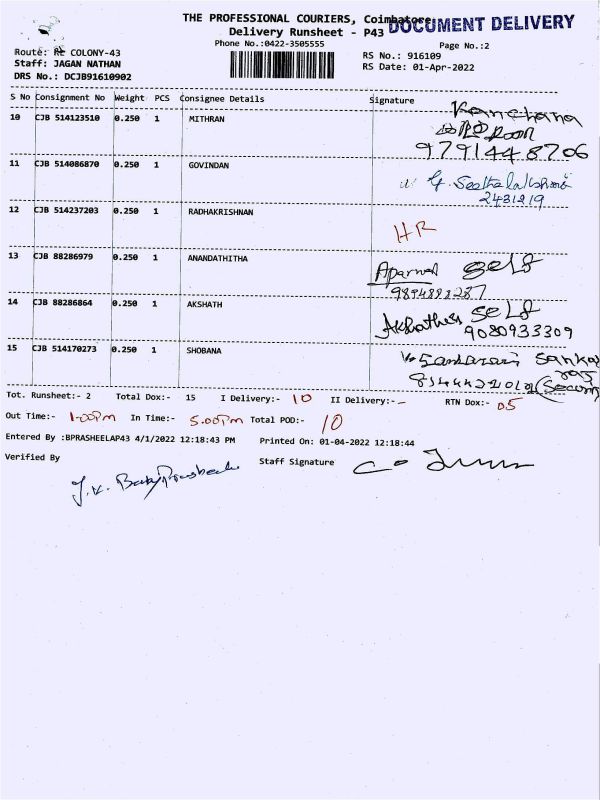 THE PROFESSIONAL COURIERS, Coimbatore
DOCUMENT DELIVERY
Delivery Runsheet - P43
Phone No.:0422-3505555
Page No.:2
Route: COLONY-43
RS No.: 916109
Staff: JAGAN NATHAN
RS Date: 01-Apr-2022
DRS No.: DCJB91610902
S No Consignment No Weight PCS Consignee Details Signature
10 CJB 514123510 0.250 1 MITHRAN Kanchana
9791448706
11 CJB 514086870 0.250 1 GOVINDAN G. Seethalakshmi
2431219
12 CJB 514237203 0.250 1 RADHAKRISHNAN HR
13 CJB 88286979 0.250 1 ANANDATHITHA Self
14 CJB 88286864 0.250 1 AKSHATH Self
9080933309
15 CJB 514170273 0.250 1 SHOBANA
Tot. Runsheet:- 2 Total Dox:- 15 I Delivery:- 10 II Delivery:- - RTN Dox:- 05
Out Time:- 1.00Pm In Time:- 5.00Pm Total POD:- 10
Entered By :BPRASHEELAP43 4/1/2022 12:18:43 PM Printed On: 01-04-2022 12:18:44
Verified By Staff Signature